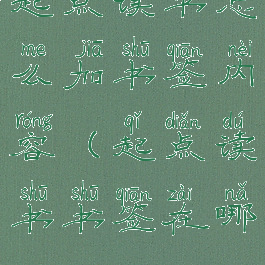 起点读书怎
me jiā shū qiān nèi
么加书签内
róng qǐ diǎn dú
容(起点读
shū shū qiān zài nǎ
书书签在哪